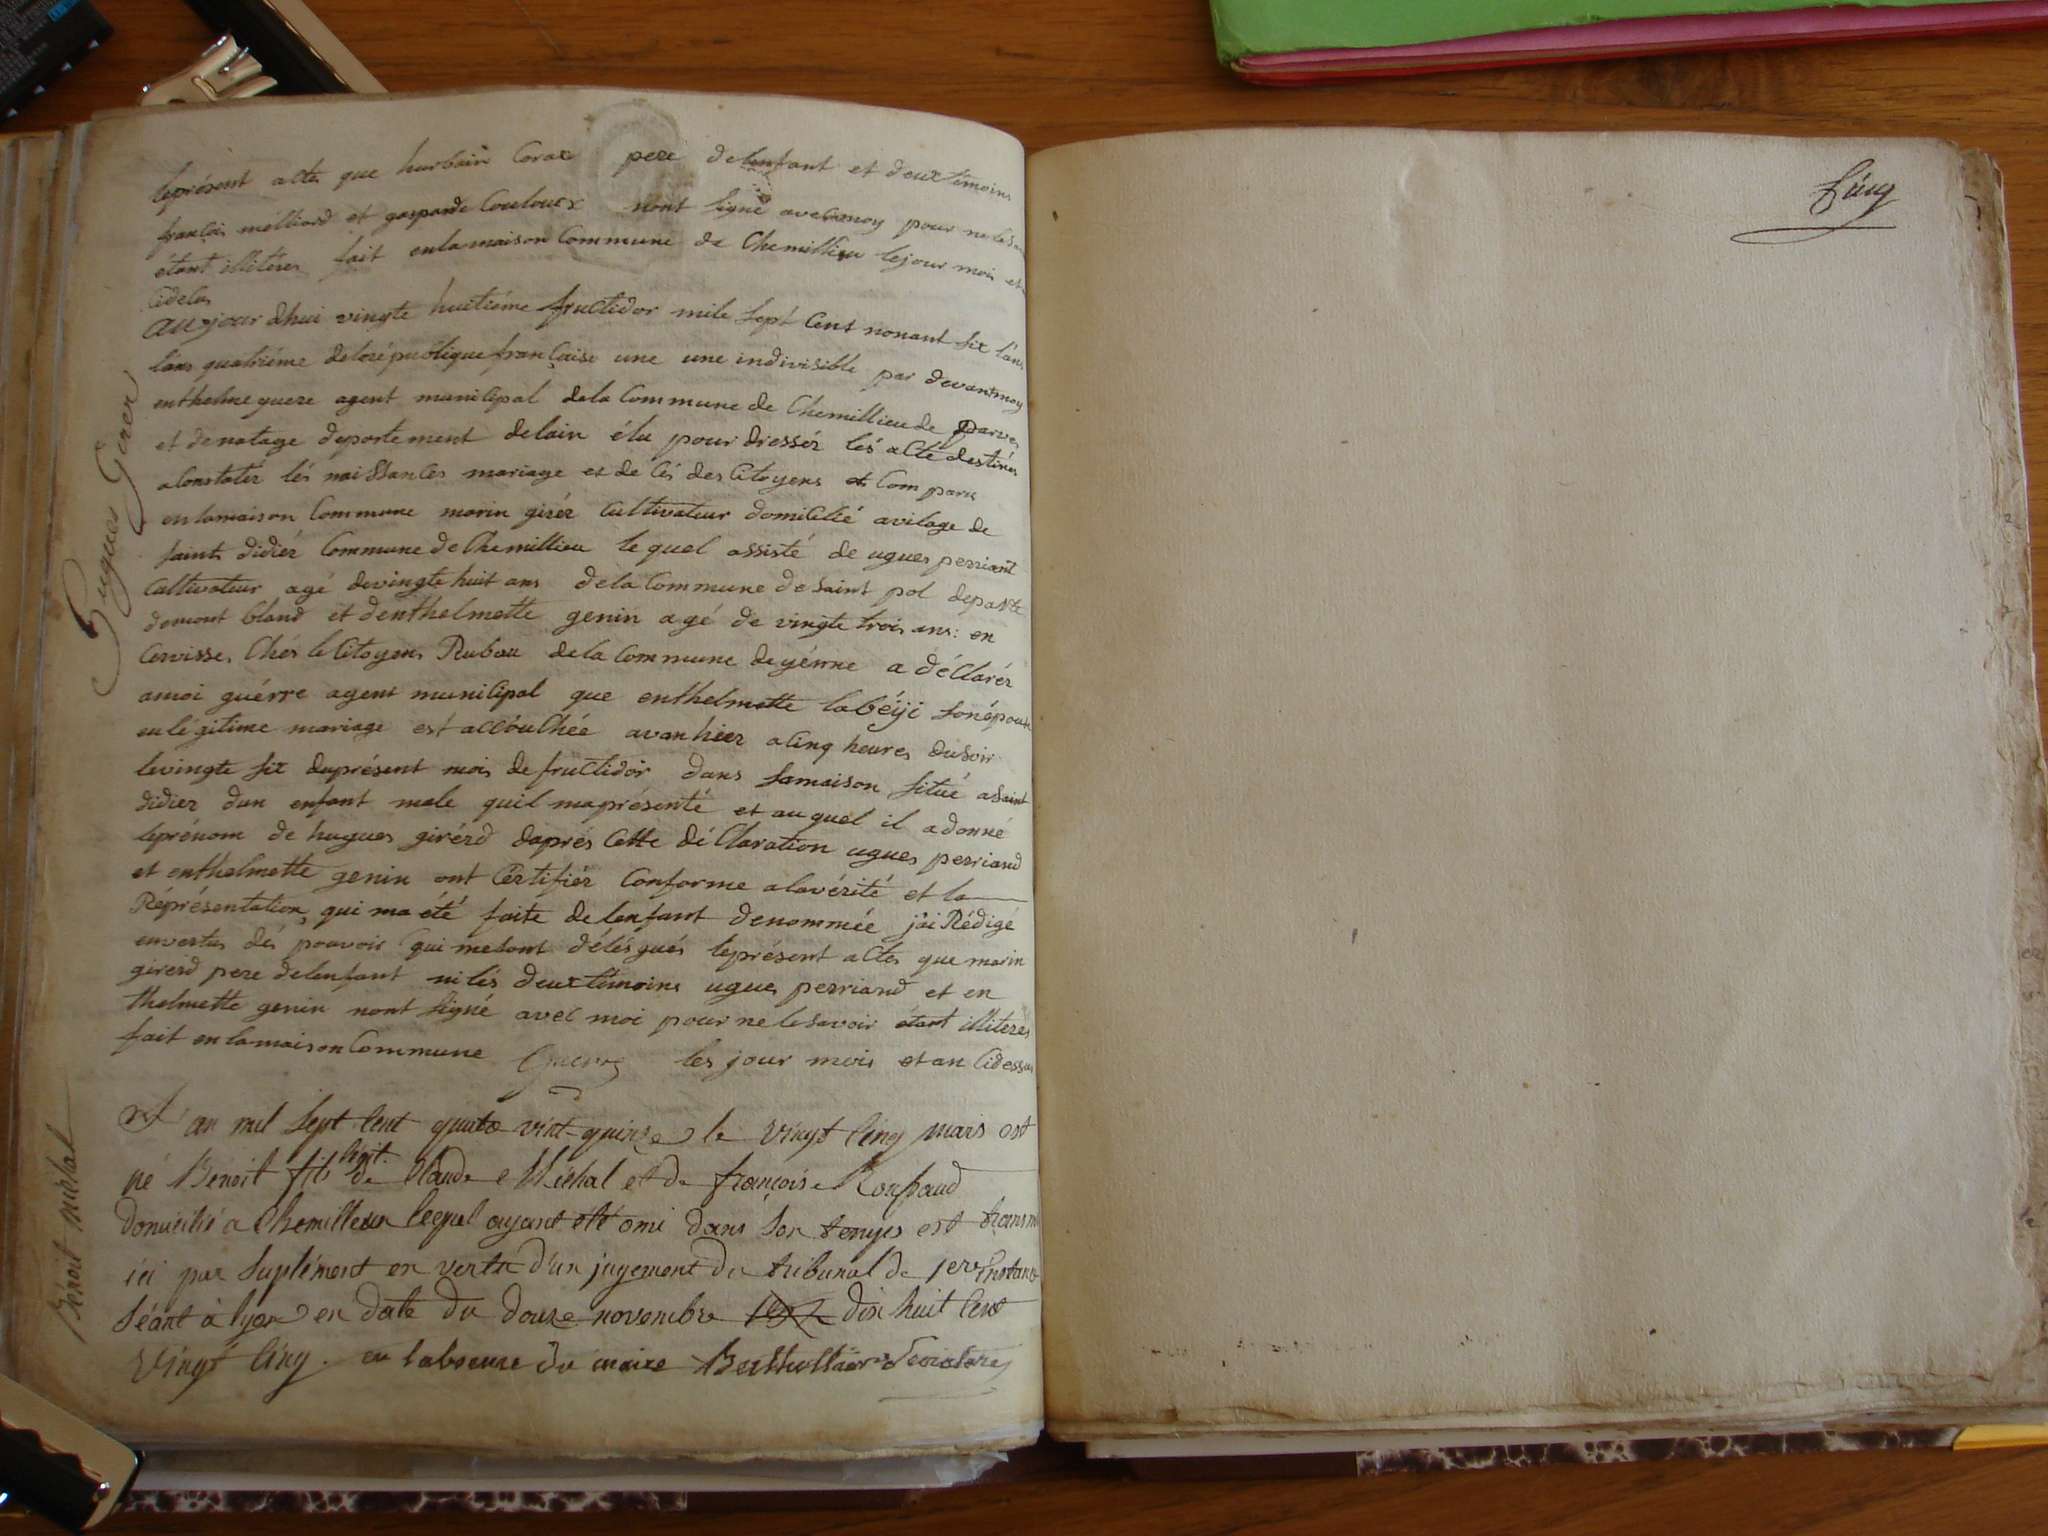 leprésent acte que hurbain Corax pere delenfant et deux témoins
françois melliard et gasparde Coulourx nont signé avecmoy pour nele
étant illitéres fait enlamaison Commune de Chemillieu lejour mois et
aujour dhui vingte huitiéme fructidor mile sept Cent nonant six
lans quatriéme delarépublique françoise une une indivisible par devantmoy
enthelme guere agent municipal dela Commune de Chemillieu de parves
et de natage deportement delain élu pour dressér lés acte destinés
aConstatér lés naissances mariage et de Cés des Citoyens et Com paru
enlamaison Commune morin girér Cultivateur domicilié avilage de
saint didiér Commune de Chemillieu lequel assisté de ugues perriant
Cultivateur agé devingte huit ans dela Commune de saint pol departe
demont bland et denthelmette genin agé de vingte trois ans: en
Cervisse Chés le Citoyen Rubau dela Commune de yénne a déClarér
amoi guérre agent municipal que enthelmette labéyi sonépouse
enlégitime mariage est accouChée avanhier aCinq heures dusoir
levingte six duprésent mois defructidor dans samaison situé asaint
didier dun enfant male quil maprésenté et auquel il adonné
leprénom de hugues girérd daprés Cette déClaration ugues perriand
et enthelmette genin ont Certifiér Conforme alavérité et la
Réprésentation qui ma été faite delenfant denommée jai Rédigé
envertus dés pouvoir qui mesont délégués leprésent actes que marin
girerd pere delenfant nilés deux témoins ugues perriand et en
thelmette genin nont signé avec moi pour nelesavoir étant illiteres
fait enlamaison Commune Guerre les jour mois et an Cidessus
Hugues Girer
L'an mil sept Cent quatre vint-quinze le vingt Cinq mars est
né Benoit fils légit. de Claude Michal et de françoise
domicilié a Chemilleu lequel ayant été omi dans son temps est transmi
ici par suplément en vertu d'un jugement du tribunal de 1ere instance
séant à lyon en date du douze novembre dix huit Cent
Vingt Cinq. en labsence du maire
Bénoit michal